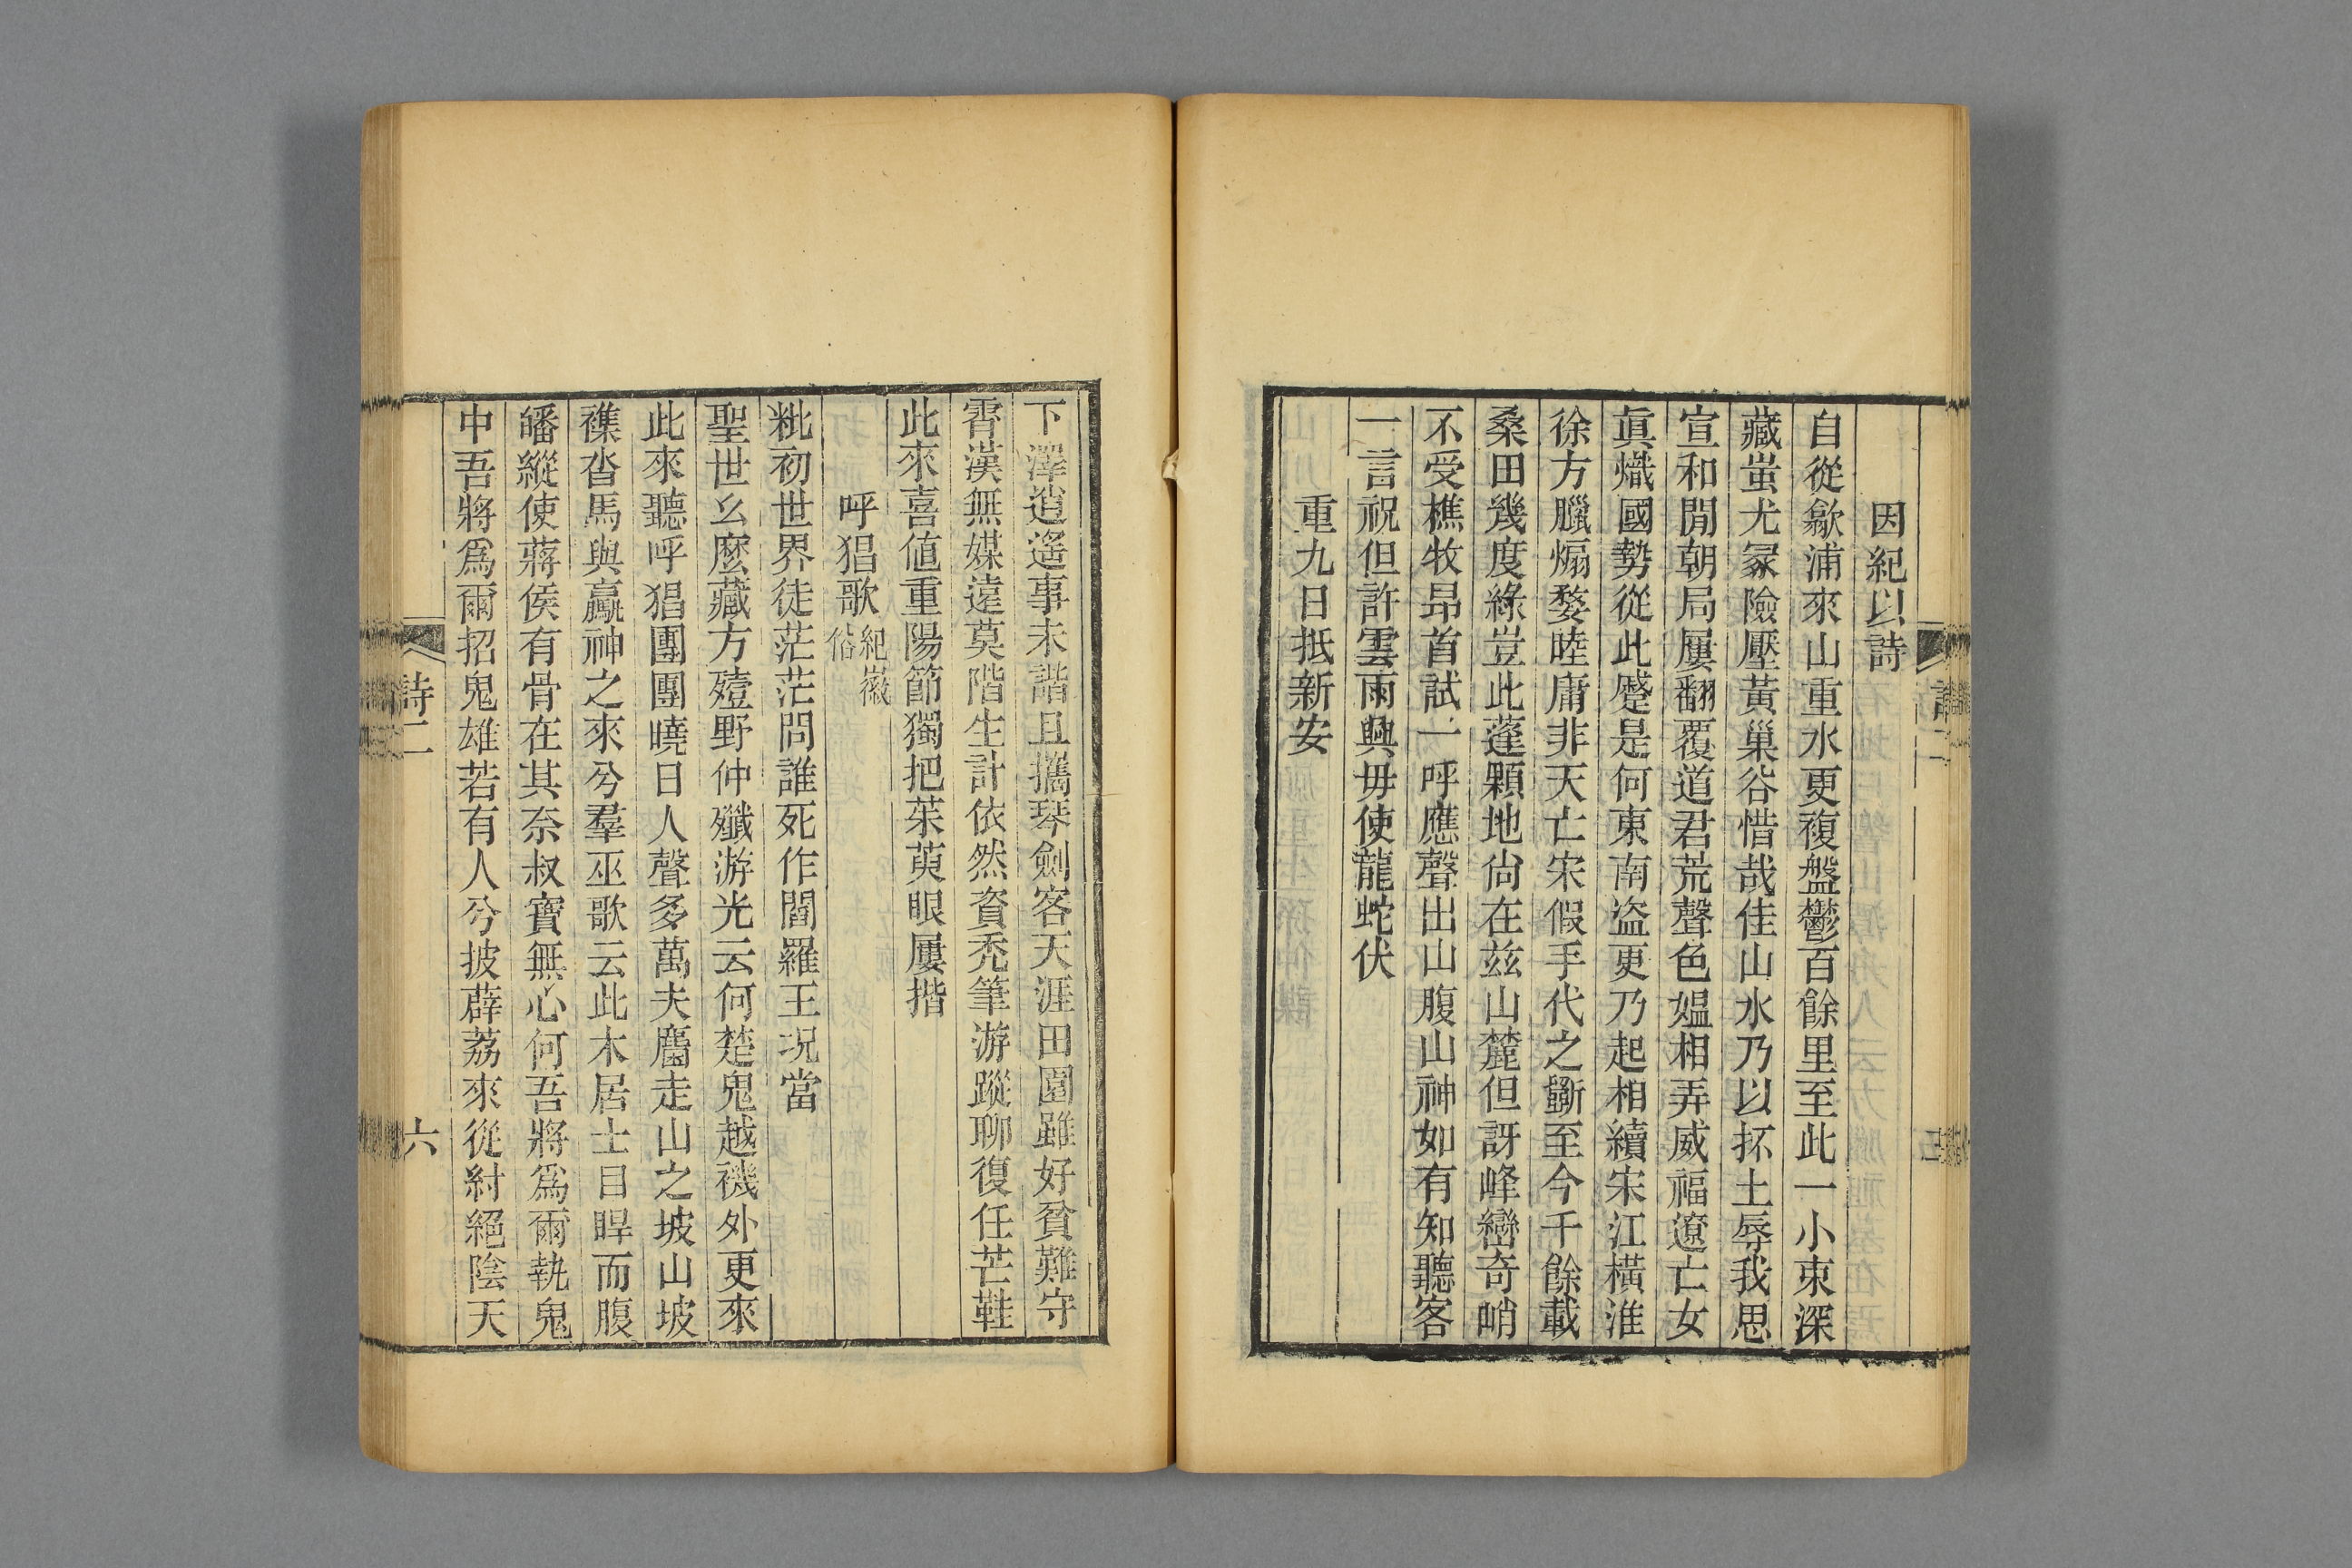 因紀以詩
自從歙浦來山重水更複盤鬱百餘里至此一小束深
藏蚩尤冢險壓黃巢谷惜哉佳山水乃以抔土辱我思
宣和閒朝局屢翻覆道君荒聲色媼相弄威福遼亡女
眞熾國勢從此蹙是何東南盜更乃起相續宋江橫淮
徐方臘煽婺睦庸非天亡宋假手代之斸至今千餘載
桑田幾度綠豈此蓬顆地尙在兹山麓但訝峰巒奇峭
不受樵牧昂首試一呼應聲出山腹山神如有知聽客
一言祝但許雲雨興毋使龍蛇伏
重九日抵新安
下澤逍遙事未諧且攜琴劍客天涯田園雖好貧難守
霄漢無媒遠莫階生計依然資禿筆游蹤聊復任芒鞋
此來喜値重陽節獨把茱萸眼屢揩
呼猖歌紀徽俗
粃初世界徒茫茫問誰死作閻羅王况當
聖世幺麽藏方殪野仲殲游光云何楚鬼越禨外更來
此來聽呼猖團團曉日人聲多萬夫麕走山之坡山坡
襍沓馬與驘神之來兮羣巫歌云此木居士目睅而腹
皤縱使蔣侯有骨在其奈叔寶無心何吾將爲爾執鬼
中吾將爲爾招鬼雄若有人兮披薜荔來從紂絕陰天
詩二
六